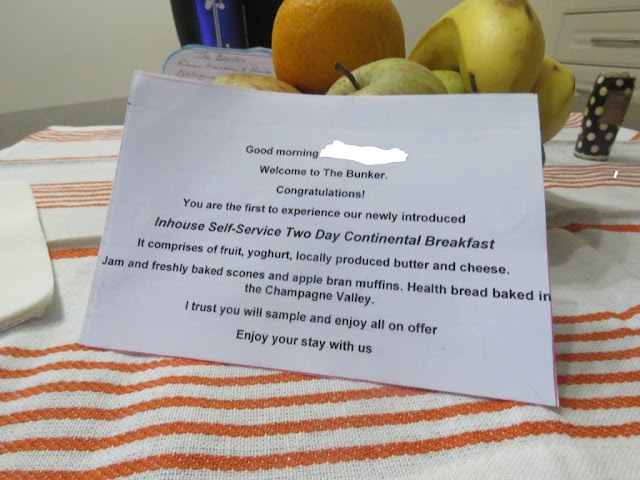 The Bunker
Good morning
Welcome to The Bunker.
Congratulations!
You are the first to experience our newly introduced
Inhouse Self-Service Two Day Continental Breakfast
It comprises of fruit, yoghurt, locally produced butter and cheese.
Jam and freshly baked scones and apple bran muffins. Health bread baked in
the Champagne Valley.
I trust you will sample and enjoy all on offer
Enjoy your stay with us